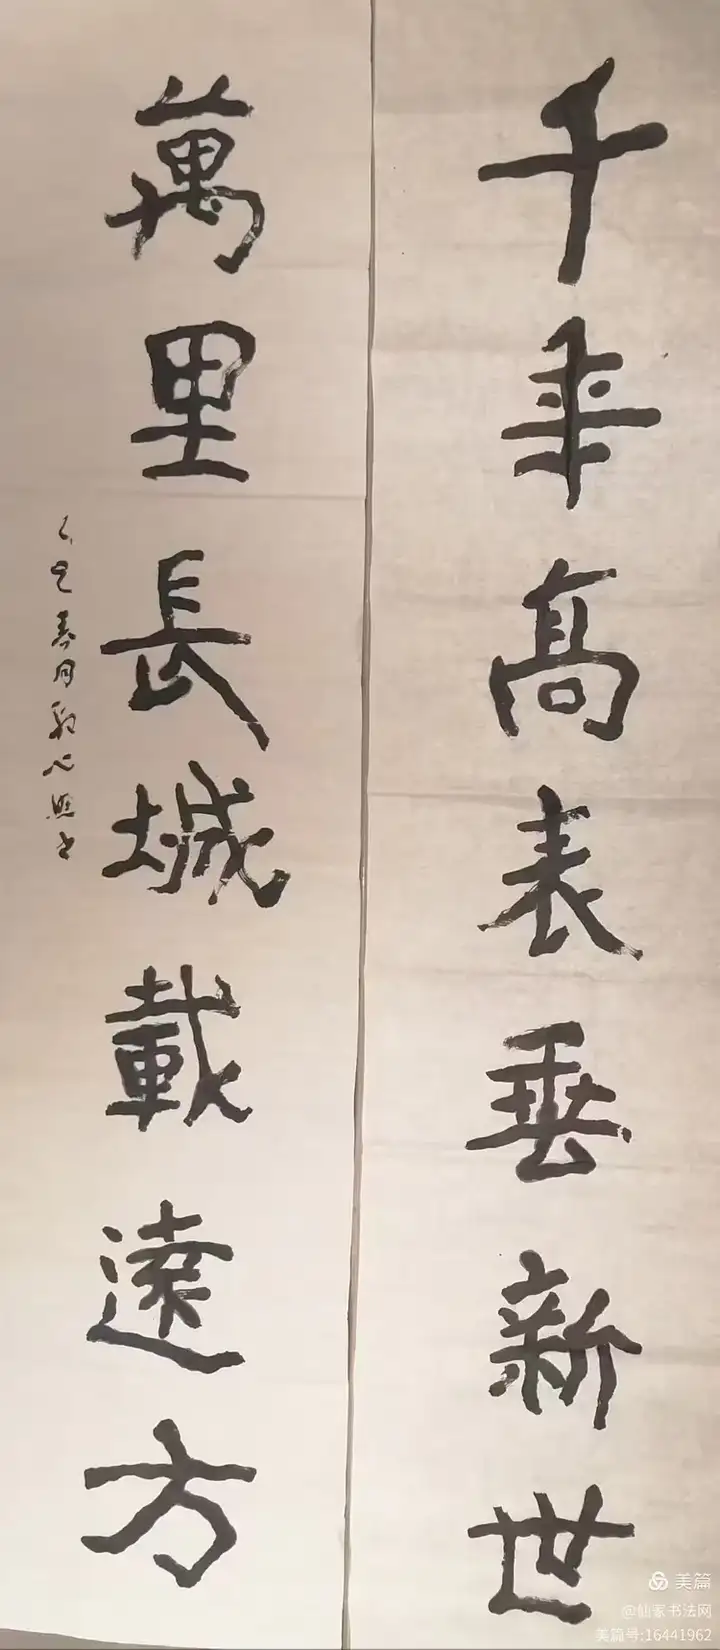 千年高表垂新世
萬里長城載遠方
乙巳春月
美篇
@仙家书法网
美篇号:16441962